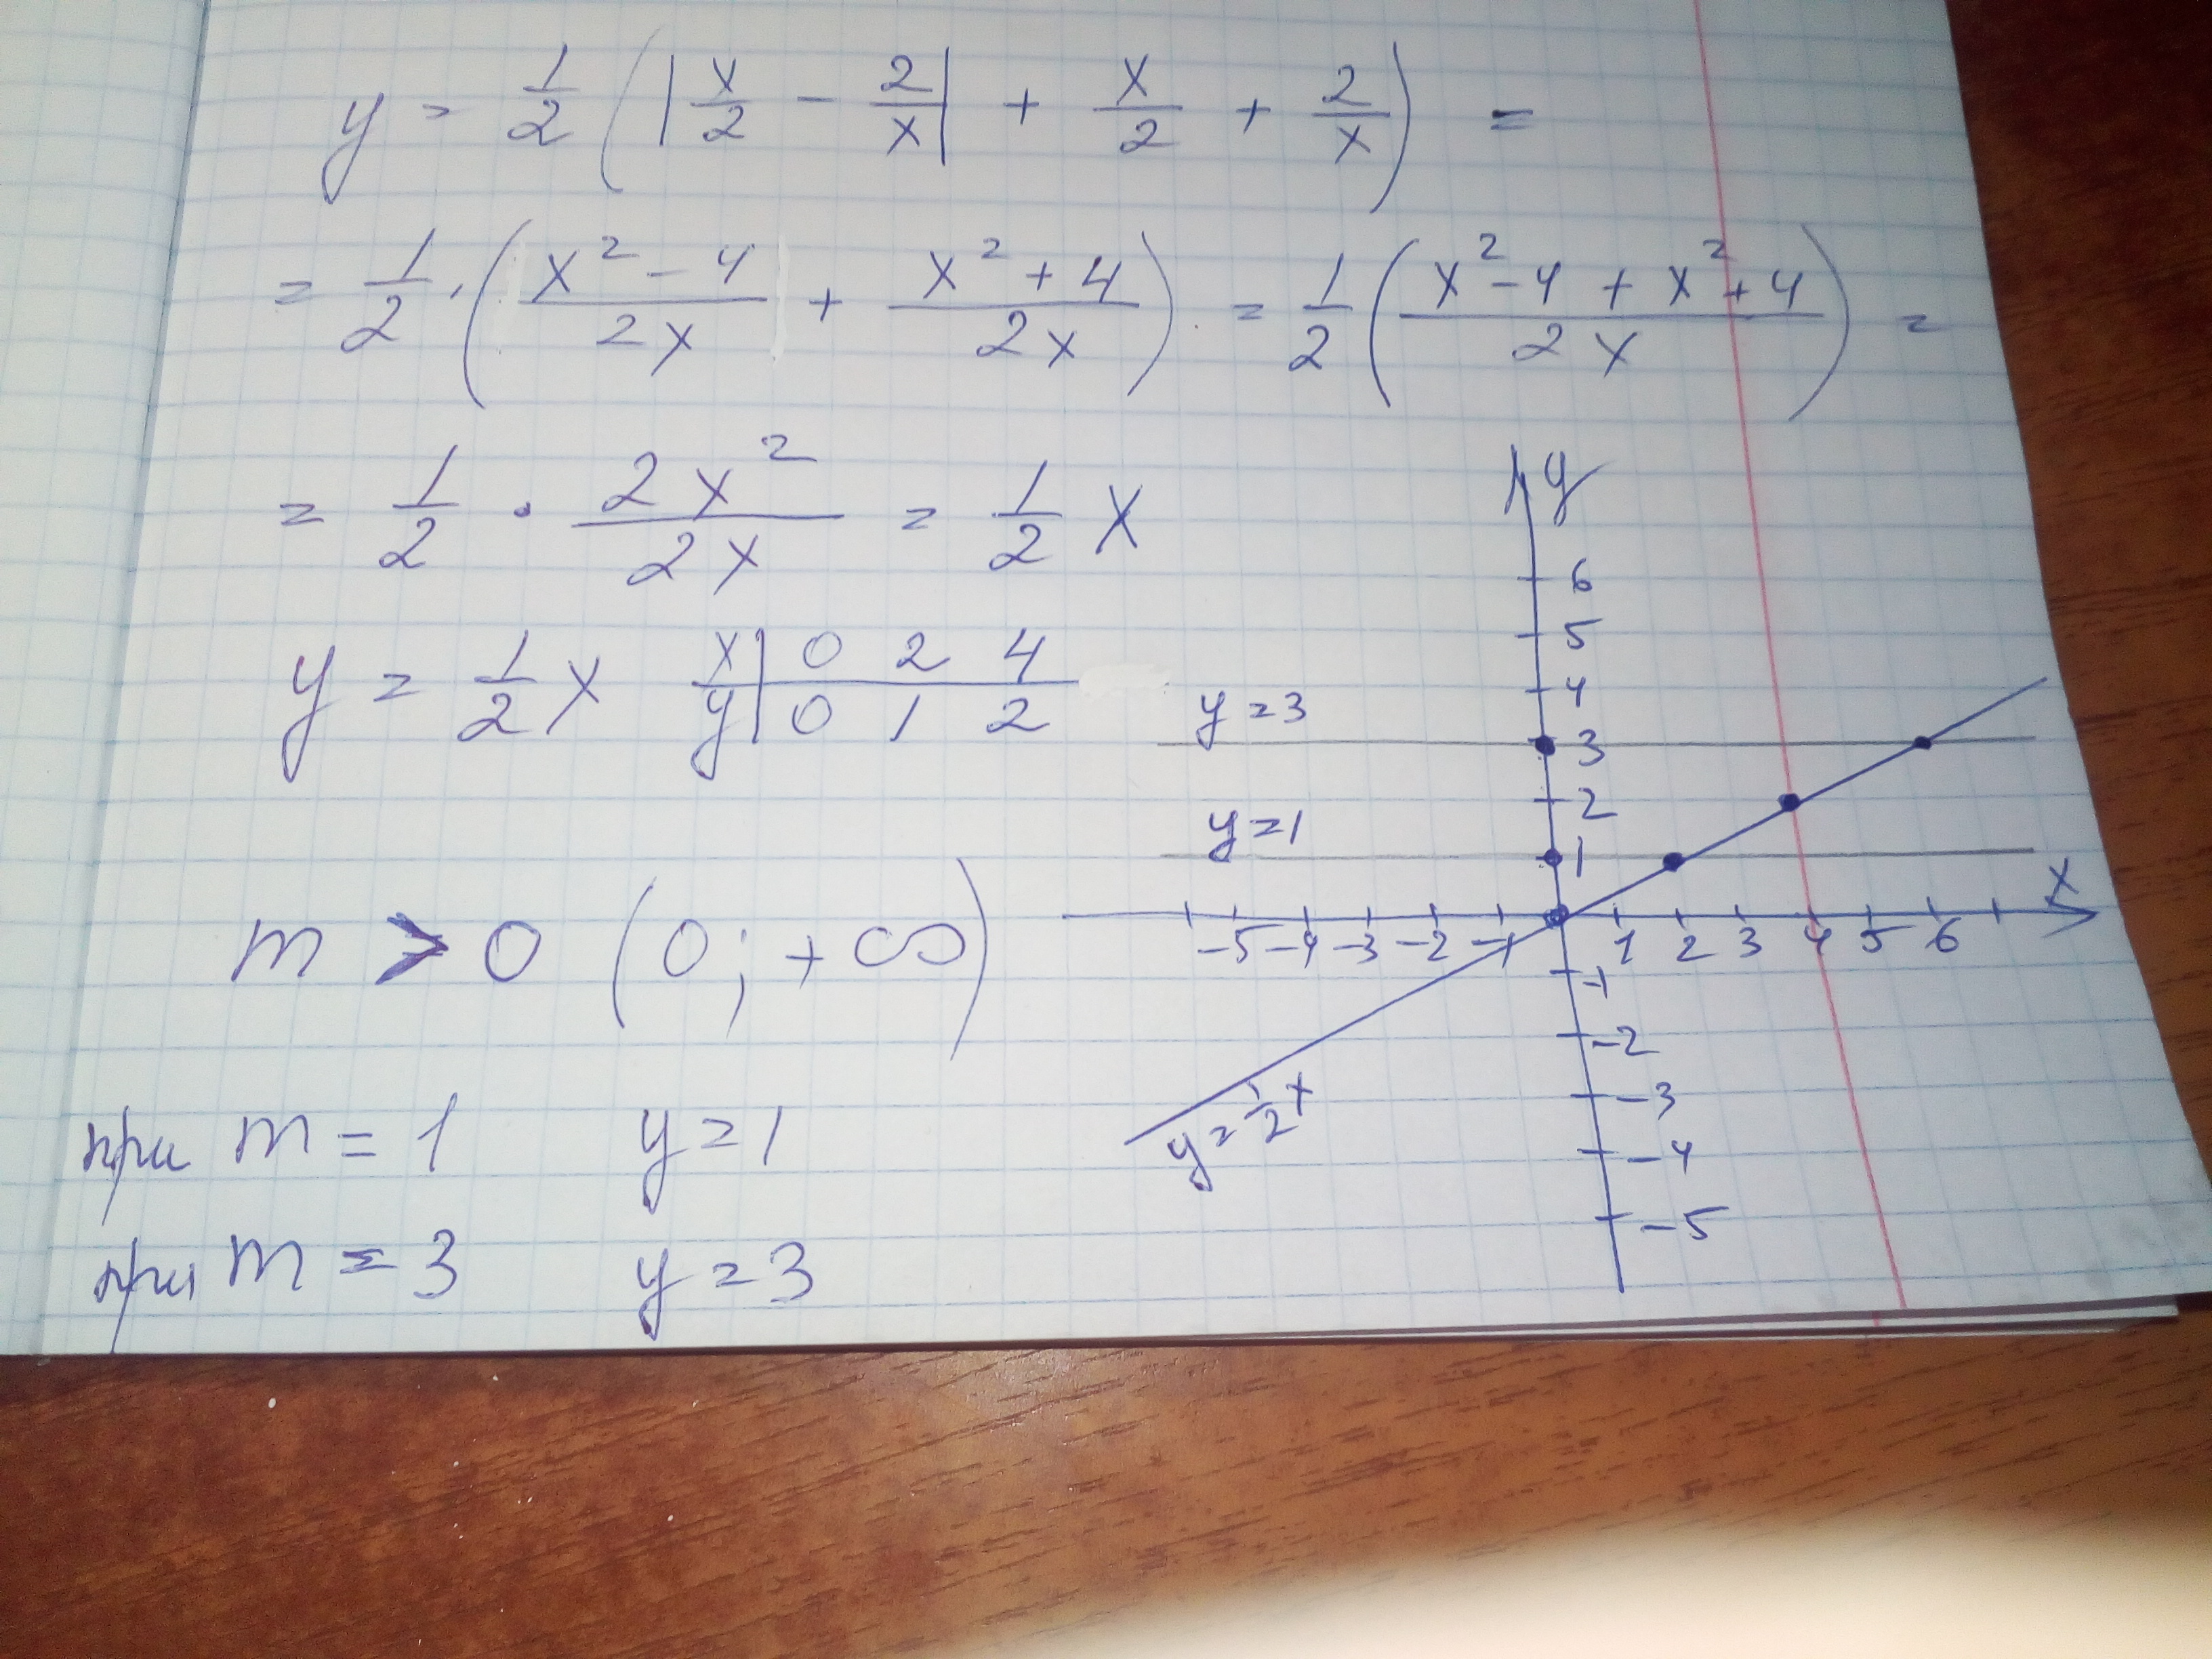 y = 1/2 (|x/2 - 2/x| + x/2 + 2/x) =
= 1/2 · (x² - 4 / 2x + x² + 4 / 2x) = 1/2 (x² - 4 + x² + 4 / 2x) =
= 1/2 · 2x² / 2x = 1/2 x
y = 1/2 x
x | 0 2 4
y | 0 1 2
m > 0 (0; +∞)
при m = 1 y = 1
при m = 3 y = 3
y
6
5
4
y = 3
3
2
y = 1
1
x
-5 -4 -3 -2 -1 1 2 3 4 5 6
-1
-2
-3
-4
-5
y = 1/2 x